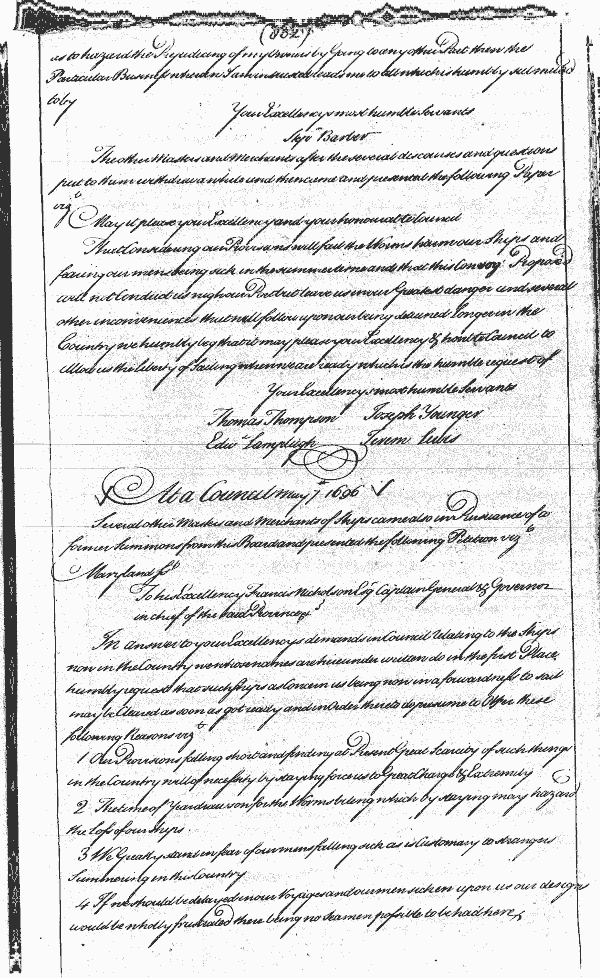 (832)
as to hazard the Prejudicing of my Owners by Going to any other Port then the
Particular Business wherein I am instructed leads me to all which is humbly submitted
to by
Your Excellencys most humble Servants
Barber
The other Masters and Merchants after the several discourses and questions
put to them withdrew a while and then came and presented the following Paper
vizt
May it please your Excellency and your honourable Councill
That Considering our Provisions will fail the Worms harm our Ships and
fearing our mens being sick in the summer time and that this Convoy Proposed
will not Conduct us nigh our Ports but leave us in our Greatest danger and several
other inconveniences that will follow upon our being detained Longer in the
Country we humbly beg that it may please your Excellency & honble Council to
allow us the liberty of Sailing when we are ready which is the humble request of
Your Excellencys most humble Servants
Thomas Thompson Joseph Younger
Edwd Lamplugh Jerem
At a Council May 7th 1696
Several other Masters and Merchants of Ships came also in Pursuance of a
former Summons from this Board and presented the following Petition vizt
Maryland sst
To his Excellency Francis Nicholson Esqr Captain General & Governor
in chief of the said Province &s
In answer to your Excellencys demands in Council relating to the Ships
now in the Country we whose names are hereunder written do in the first Place
humbly request that such Ships as Concern us being now in a forwardness to sail
may be Cleared as soon as got ready and in Order thereto do presume to Offer these
following Reasons vizt
1 Our Provisions falling short and finding at Present Great Scarcity of such things
in the Country will of necessity by staying force us to Great Charge & Extremity
2 The time of Year draws on for the Worms biting which by staying may hazard
the Loss of our Ships
3 We Greatly stand in fear of our mens falling sick as is Customary to strangers
Summering in this Country
4 If we should be delayed in our Voyages and our men sicken upon us our designs
would be wholly frustrated there being no Seamen possible to be had here